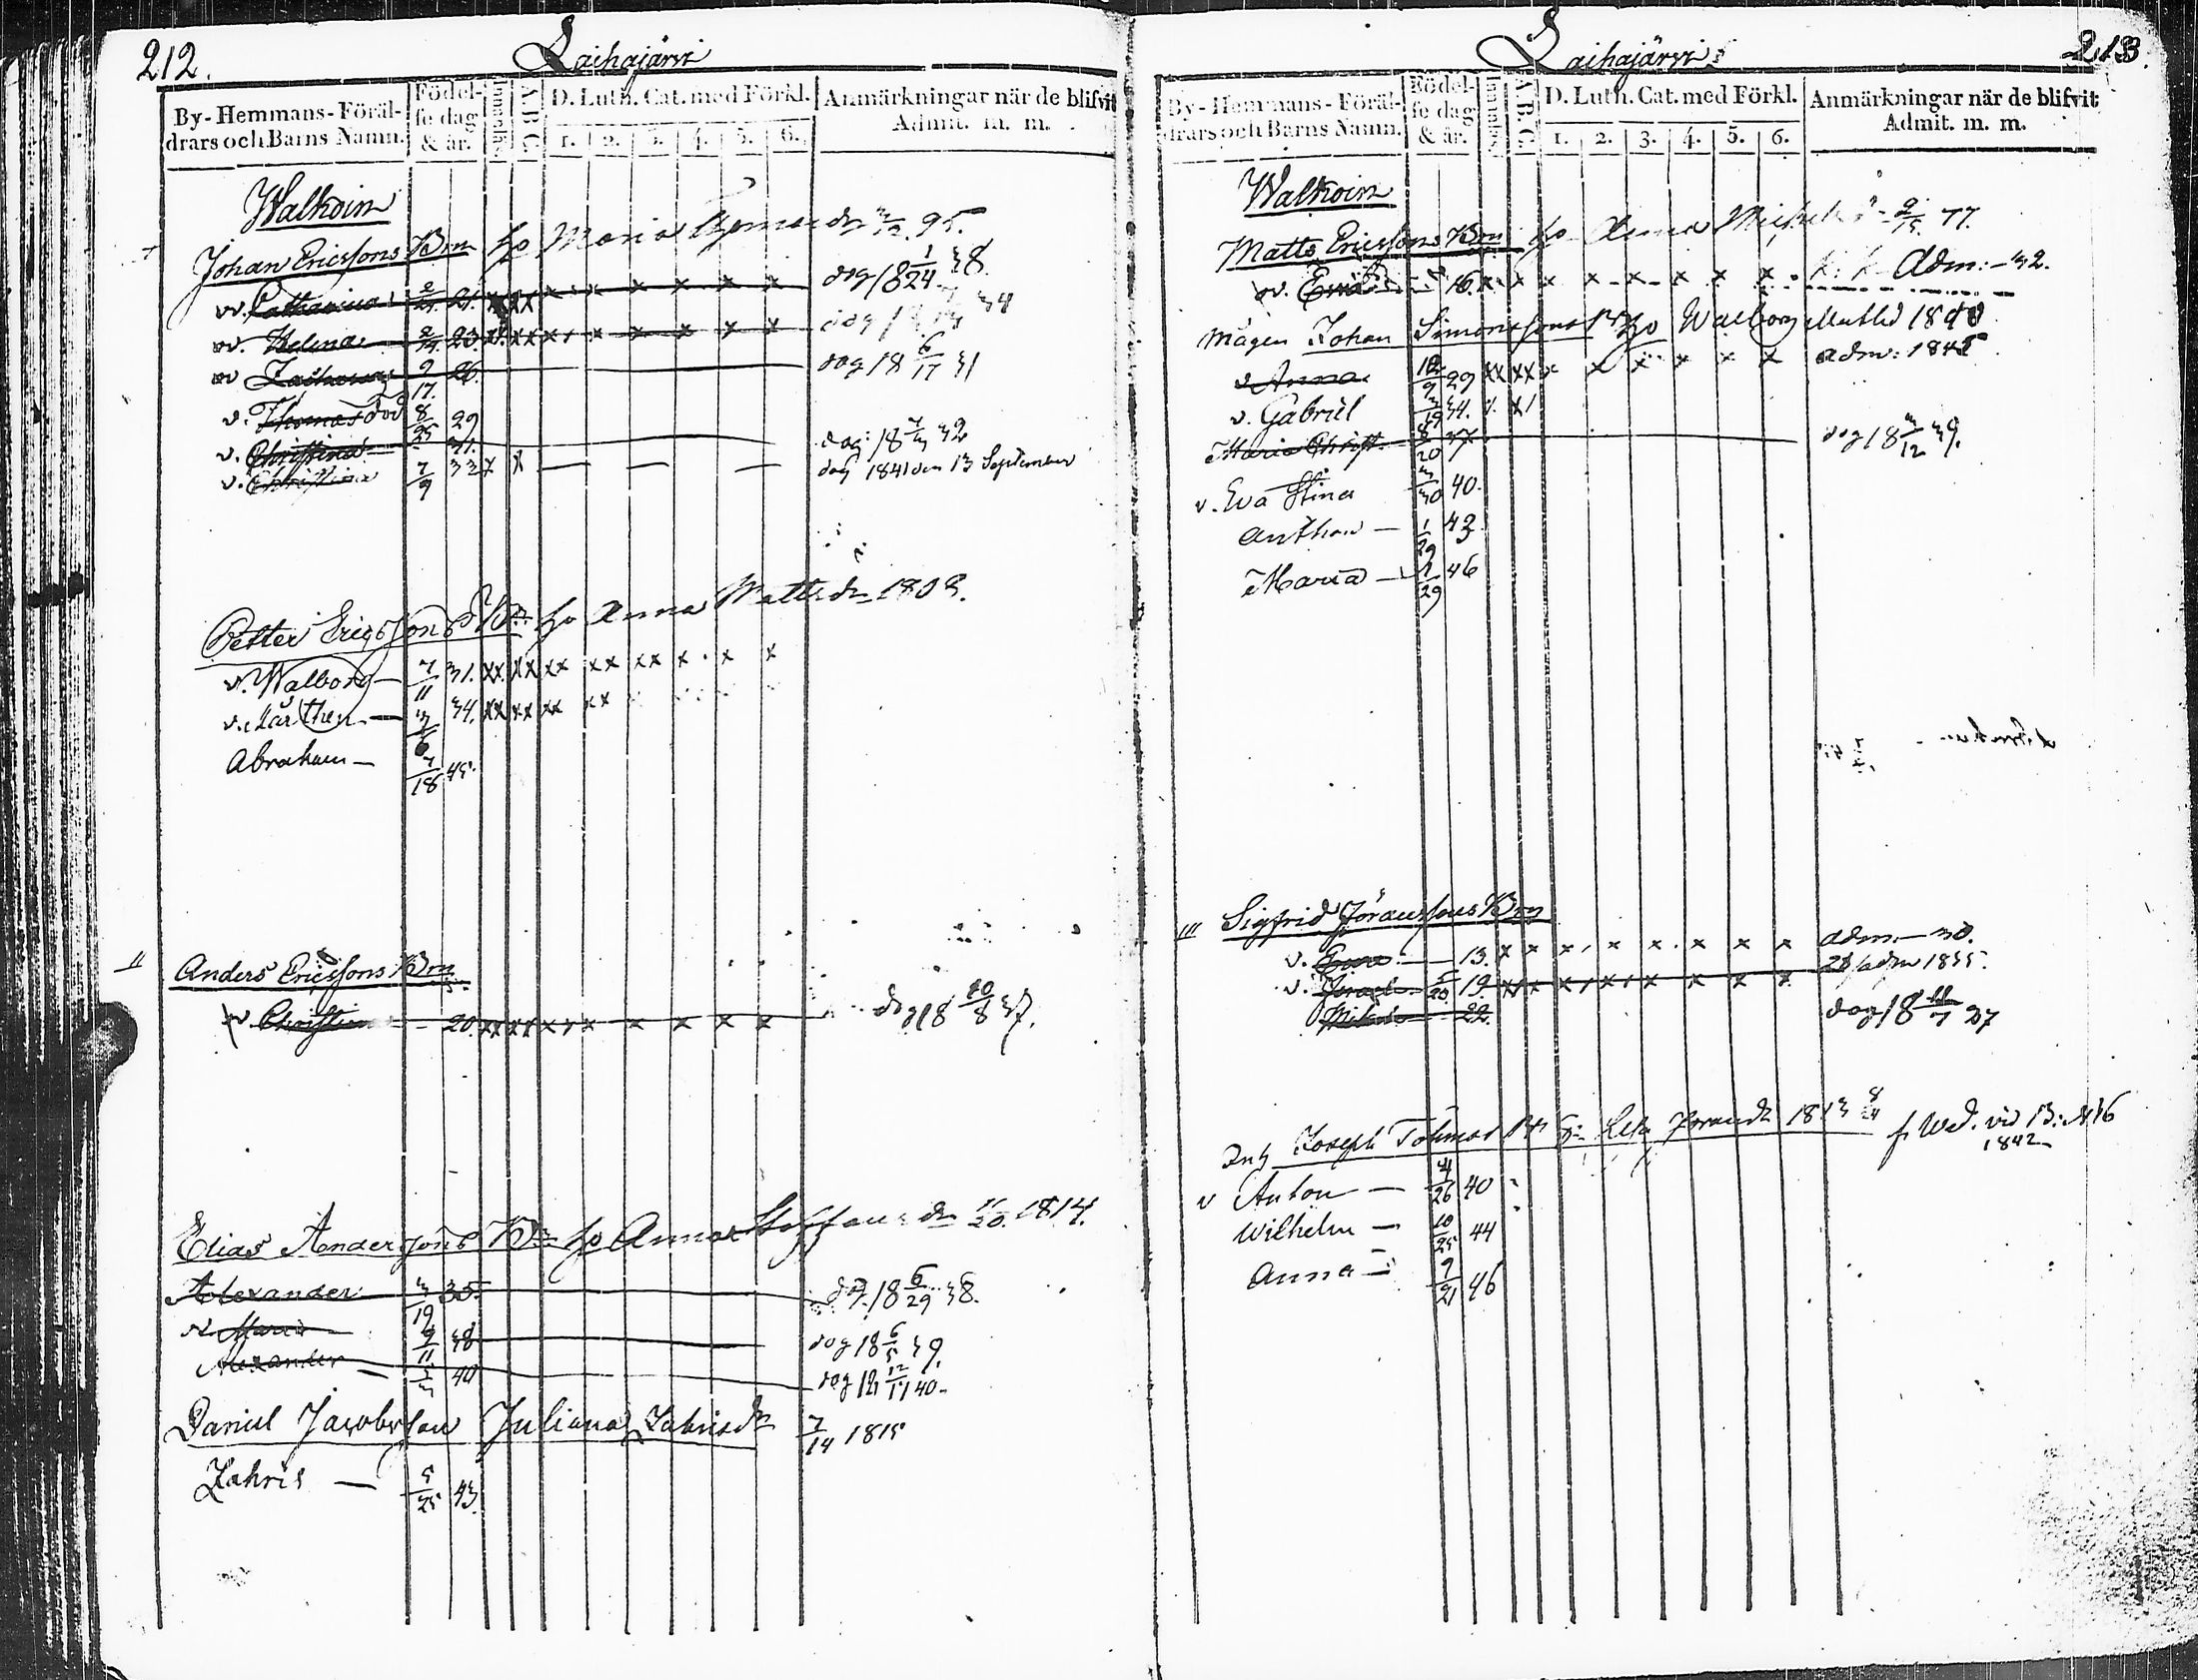 212.
Laihajärvi
By-Hemmans-Föräl-
drars och Barns Namn.
Födel-
se dag
& år.
Innanläs.
A.B.C.
D. Luth. Cat. med Förkl.
1. 2. 3. 4. 5. 6.
Anmärkningar när de blifvit
Admit. m. m.
Walkoin
Johan Ericssons Brn ho Maria 95.
v. Catharina 21. x x x x x x dög 18 1/24 38.
v. Helena 23 x x x x x x
26. dög 18 6/17 31
v. Thomas död 8/25 29
v. Christina 31. dög 18 32
v. Christina 7/9 33 x x dög 1841 den 13 September
Petter Ericssons Brn ho Anna Mattsdr 1803.
v. Walborg 7/11 31. xx xx xx xx xx x x x
v. Mårthen 3/6 34. xx xx xx xx
Abraham 7/18 45.
Anders Ericssons Brn
v. Christina 20. xx xx x x x x x x dög 18 10/8 37.
Elias Andersons Brn ho Anna Staffansdr 1814.
Alexander 3/19 35. dög 18 6/29 38.
v. Maria 9/11 38 dog 18 6/5 39.
Alexander 40 dog 12/17 40.
Daniel Jacobsson Juliana Zakrisdr 7/14 1815
Zakris 5/25 43.
213.
Laihajärvi
By-Hemmans-Föräl-
drars och Barns Namn.
Födel-
se dag
& år.
Innanläs.
A.B.C.
D. Luth. Cat. med Förkl.
1. 2. 3. 4. 5. 6.
Anmärkningar när de blifvit
Admit. m. m.
Walkoin
Matts Ericssons Brn ho Anna 77.
v. 16. x x x x x x x x Adm: 32.
Mågen Johan Simonssons Brn ho Walborg Mattsd 18
v. Anna 12/9 29 xx xx x x x x x x adm: 1845
v. Gabriel 3/19 34.
Maria Christ. 8/20 37 dog 18 3/12 39.
v. Eva Stina 3/30 40.
Anthon 1/29 43
Maria 1/29 46
Sigfrid Göranssons Brn
v. 13. x x x x x x x x adm. 30.
v. Israel 5/20 19. x x x x x x adm 1835.
22. dog 18 11/7 27
Inh Joseph Brn 1813 8/4
1842
v Anton 4/26 40
Wilhelm 10/25 44
Anna 9/21 46